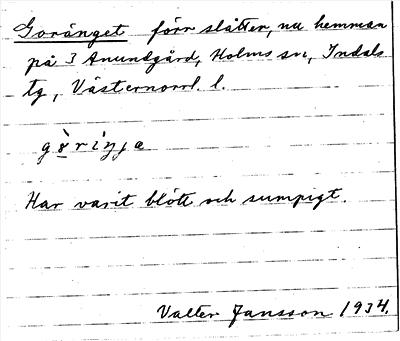 Goränget förr slåtter, nu hemman
på 3 Anundgård, Holms sn, Indals
tg, Västernorrl. l.
Har varit blött och sumpigt.
Valter Jansson 1934.